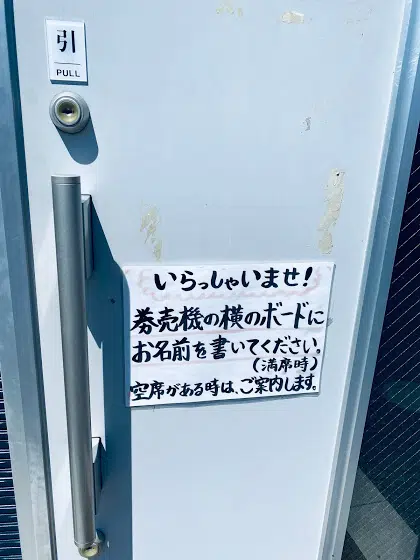 引
PULL
いらっしゃいませ!
券売機の横のボードに
お名前を書いてください。
(満席時)
空席がある時は、ご案内します。